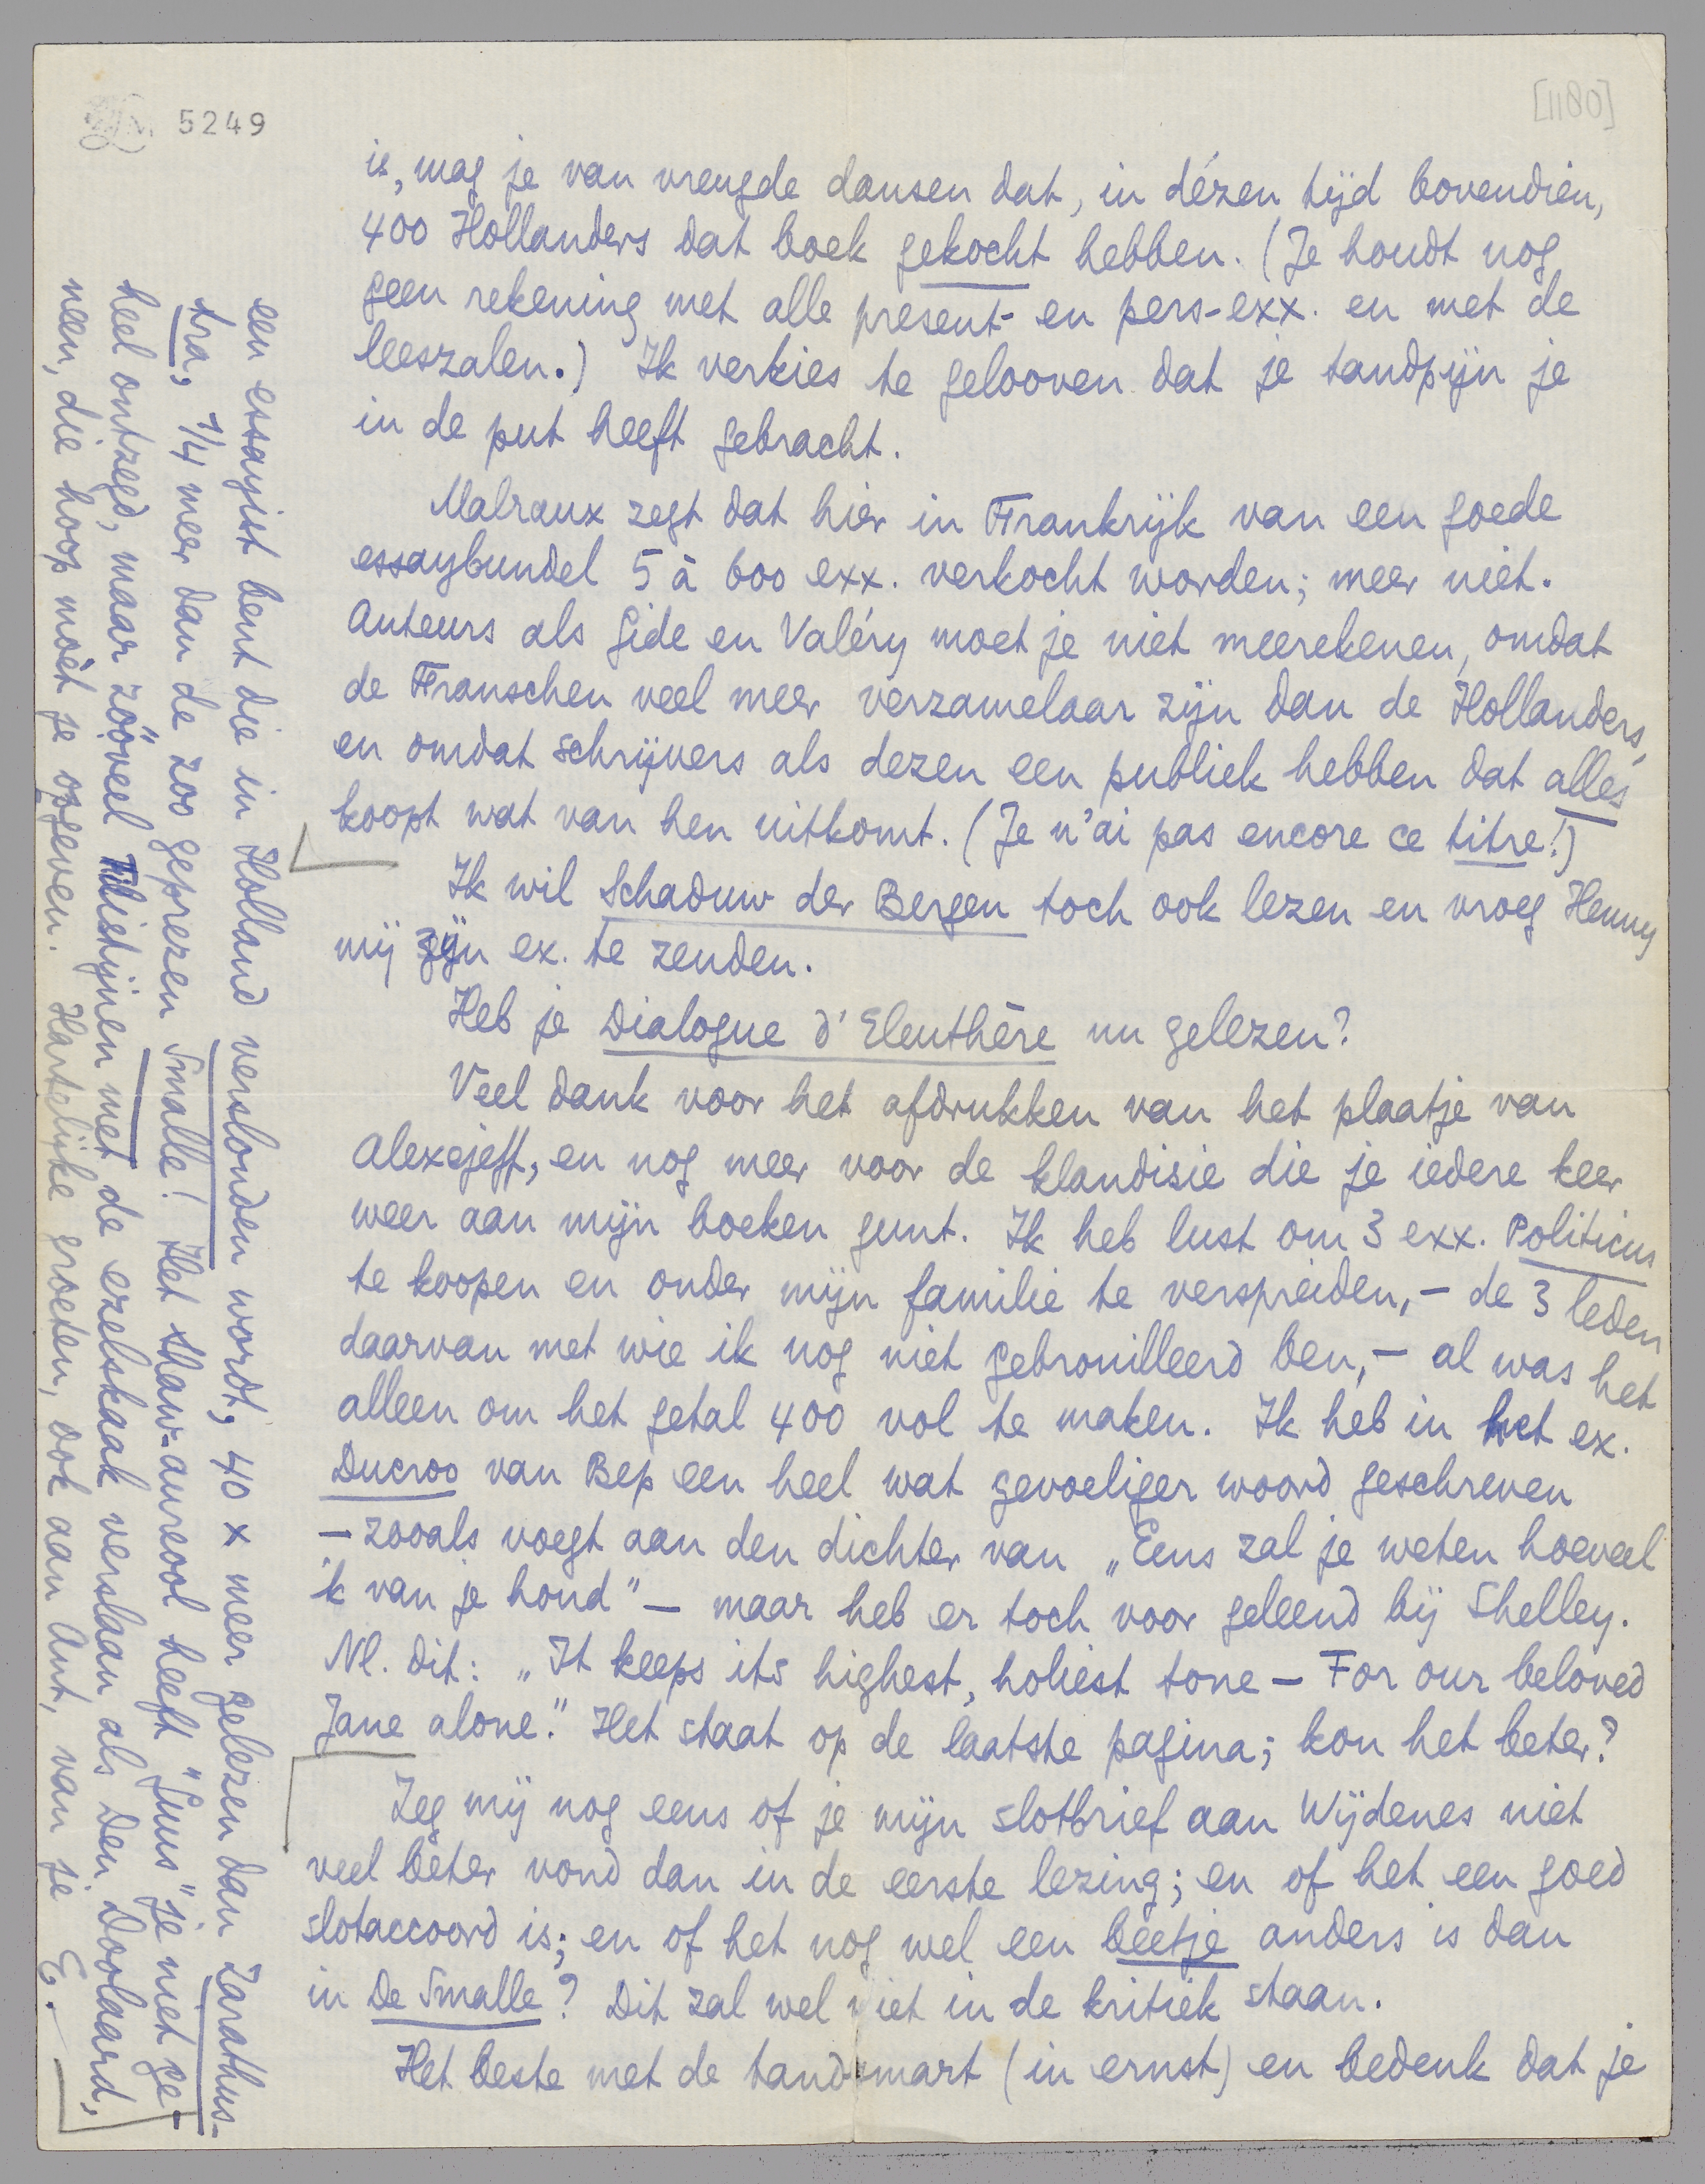 5249
[1180]
is, mag je van vreugde dansen dat, in dézen tijd bovendien,
400 Hollanders dat boek gekocht hebben. (Je houdt nog
geen rekening met alle present- en pers-exx. en met de
leeszalen.) Ik verkies te gelooven dat je tandpijn je
in de put heeft gebracht.
Malraux zegt dat hier in Frankrijk van een goede
essaybundel 5 à 600 exx. verkocht worden; meer niet.
Auteurs als Gide en Valéry moet je niet meerekenen, omdat
de Franschen veel meer verzamelaar zijn dan de Hollanders,
en omdat schrijvers als dezen een publiek hebben dat alles
koopt wat van hen uitkomt. (Je n'ai pas encore ce titre!)
Ik wil Schaduw der Bergen toch ook lezen en vroeg Henny
mij zijn ex. te zenden.
Heb je Dialogue d'Eleuthère nu gelezen?
Veel dank voor het afdrukken van het plaatje van
Alexejeff, en nog meer voor de klandisie die je iedere keer
weer aan mijn boeken gunt. Ik heb lust om 3 exx. Politicus
te koopen en onder mijn familie te verspreiden, - de 3 leden
daarvan met wie ik nog niet gebrouilleerd ben, - al was het
alleen om het getal 400 vol te maken. Ik heb in het ex.
Ducroo van Bep een heel wat gevoeliger woord geschreven
- zooals voegt aan den dichter van „Eens zal je weten hoeveel
ik van je houd" - maar heb er toch voor geleend bij Shelley.
Nl. dit: „It keeps its highest, holiest tone - For our beloved
Jane alone." Het staat op de laatste pagina; kon het beter?
Zeg mij nog eens of je mijn slotbrief aan Wijdenes niet
veel beter vond dan in de eerste lezing; en of het een goed
slotaccoord is; en of het nog wel een beetje anders is dan
in De Smalle? Dit zal wel niet in de kritiek staan.
Het beste met de tandsmart (in ernst) en bedenk dat je
een essayist bent die in Holland verslonden wordt, 40 x meer gelezen dan Zarathus-
tra, 1/4 meer dan de zoo geprezen Smalle! Het Shaw-aureool heeft "Guus" je niet ge-
heel ontzegd, maar zóóveel Filistijnen met de ezelskaak verslaan als Den Doolaard,
neen, die hoop moèt je opgeven. Hartelijke groeten, ook aan Ant, van je E.